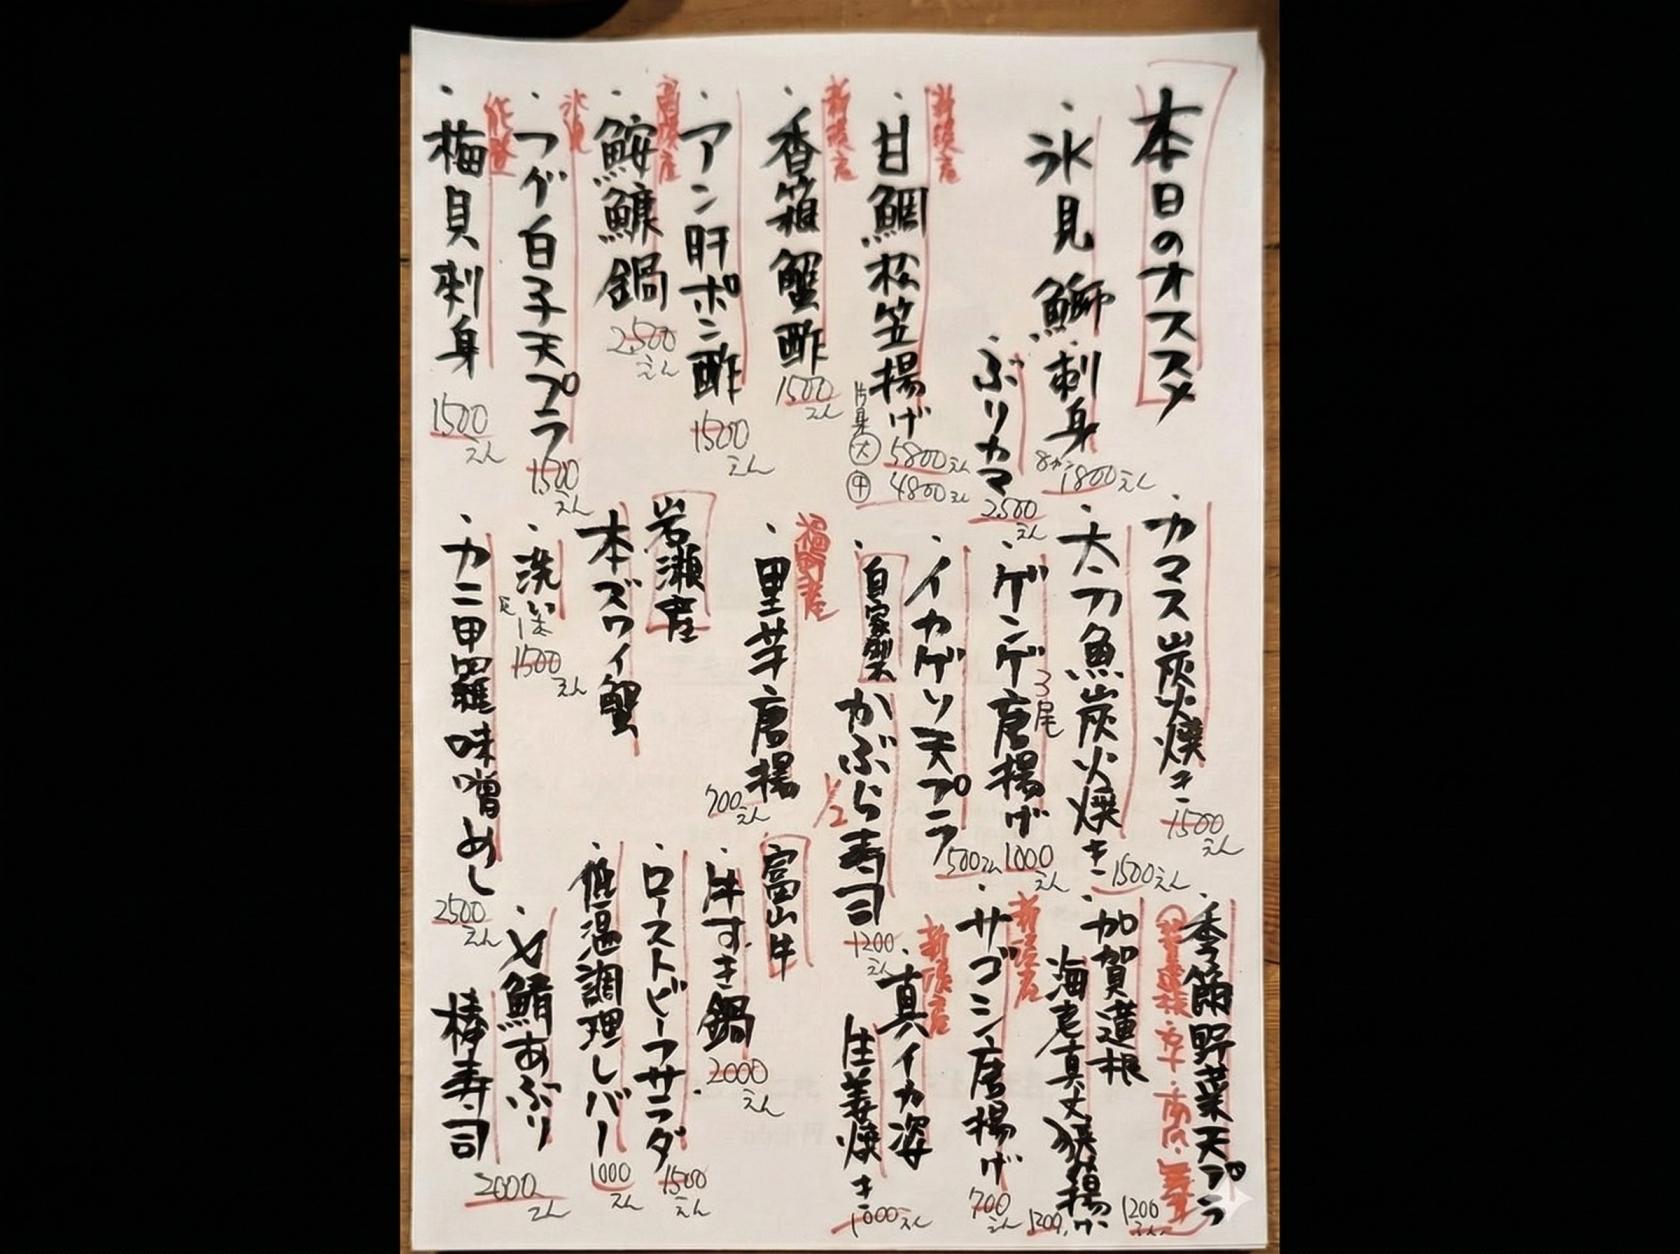 本日のオススメ
・氷見鰤刺身
8カン 1800えん
・ぶりカマ
2500えん
新湊産
・甘鯛松笠揚げ
片身 大 5800えん
中 4800えん
新湊産
・香箱蟹酢
1500えん
・アン肝ポン酢
1500えん
新湊産
・鮟鱇鍋
2500えん
氷見
・フグ白子天プラ
1500えん
能登
・梅貝刺身
1500えん
・カマス炭火焼き
1500えん
・太刀魚炭火焼き
1500えん
・ゲンゲ唐揚げ
3尾
1000えん
・イカゲソ天プラ
500えん
・自家製かぶら寿司
1/2
1200えん
福野産
・里芋唐揚
700えん
岩瀬産
本ズワイ蟹
・洗い
1500えん
・カニ甲羅味噌めし
2500えん
・季節野菜天プラ
1200えん
・加賀蓮根
海老真丈挟揚げ
1200
新湊産
・サゴシ唐揚げ
700えん
新湊産
・真イカ姿
生姜焼き
1000えん
富山牛
・牛すき鍋
2000えん
・ローストビーフサラダ
1500えん
・低温調理レバー
1000えん
・〆鯖あぶり
棒寿司
2000えん